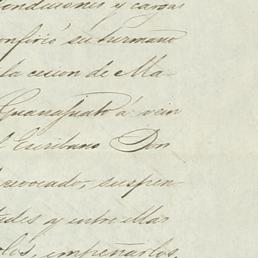 pensiones y cargas
onfirió su hermano
la cesion de Ma-
Guanajuato á vein
l Escribano Don
revocado, suspen-
tades y entre ellas
los, empeñarlos,